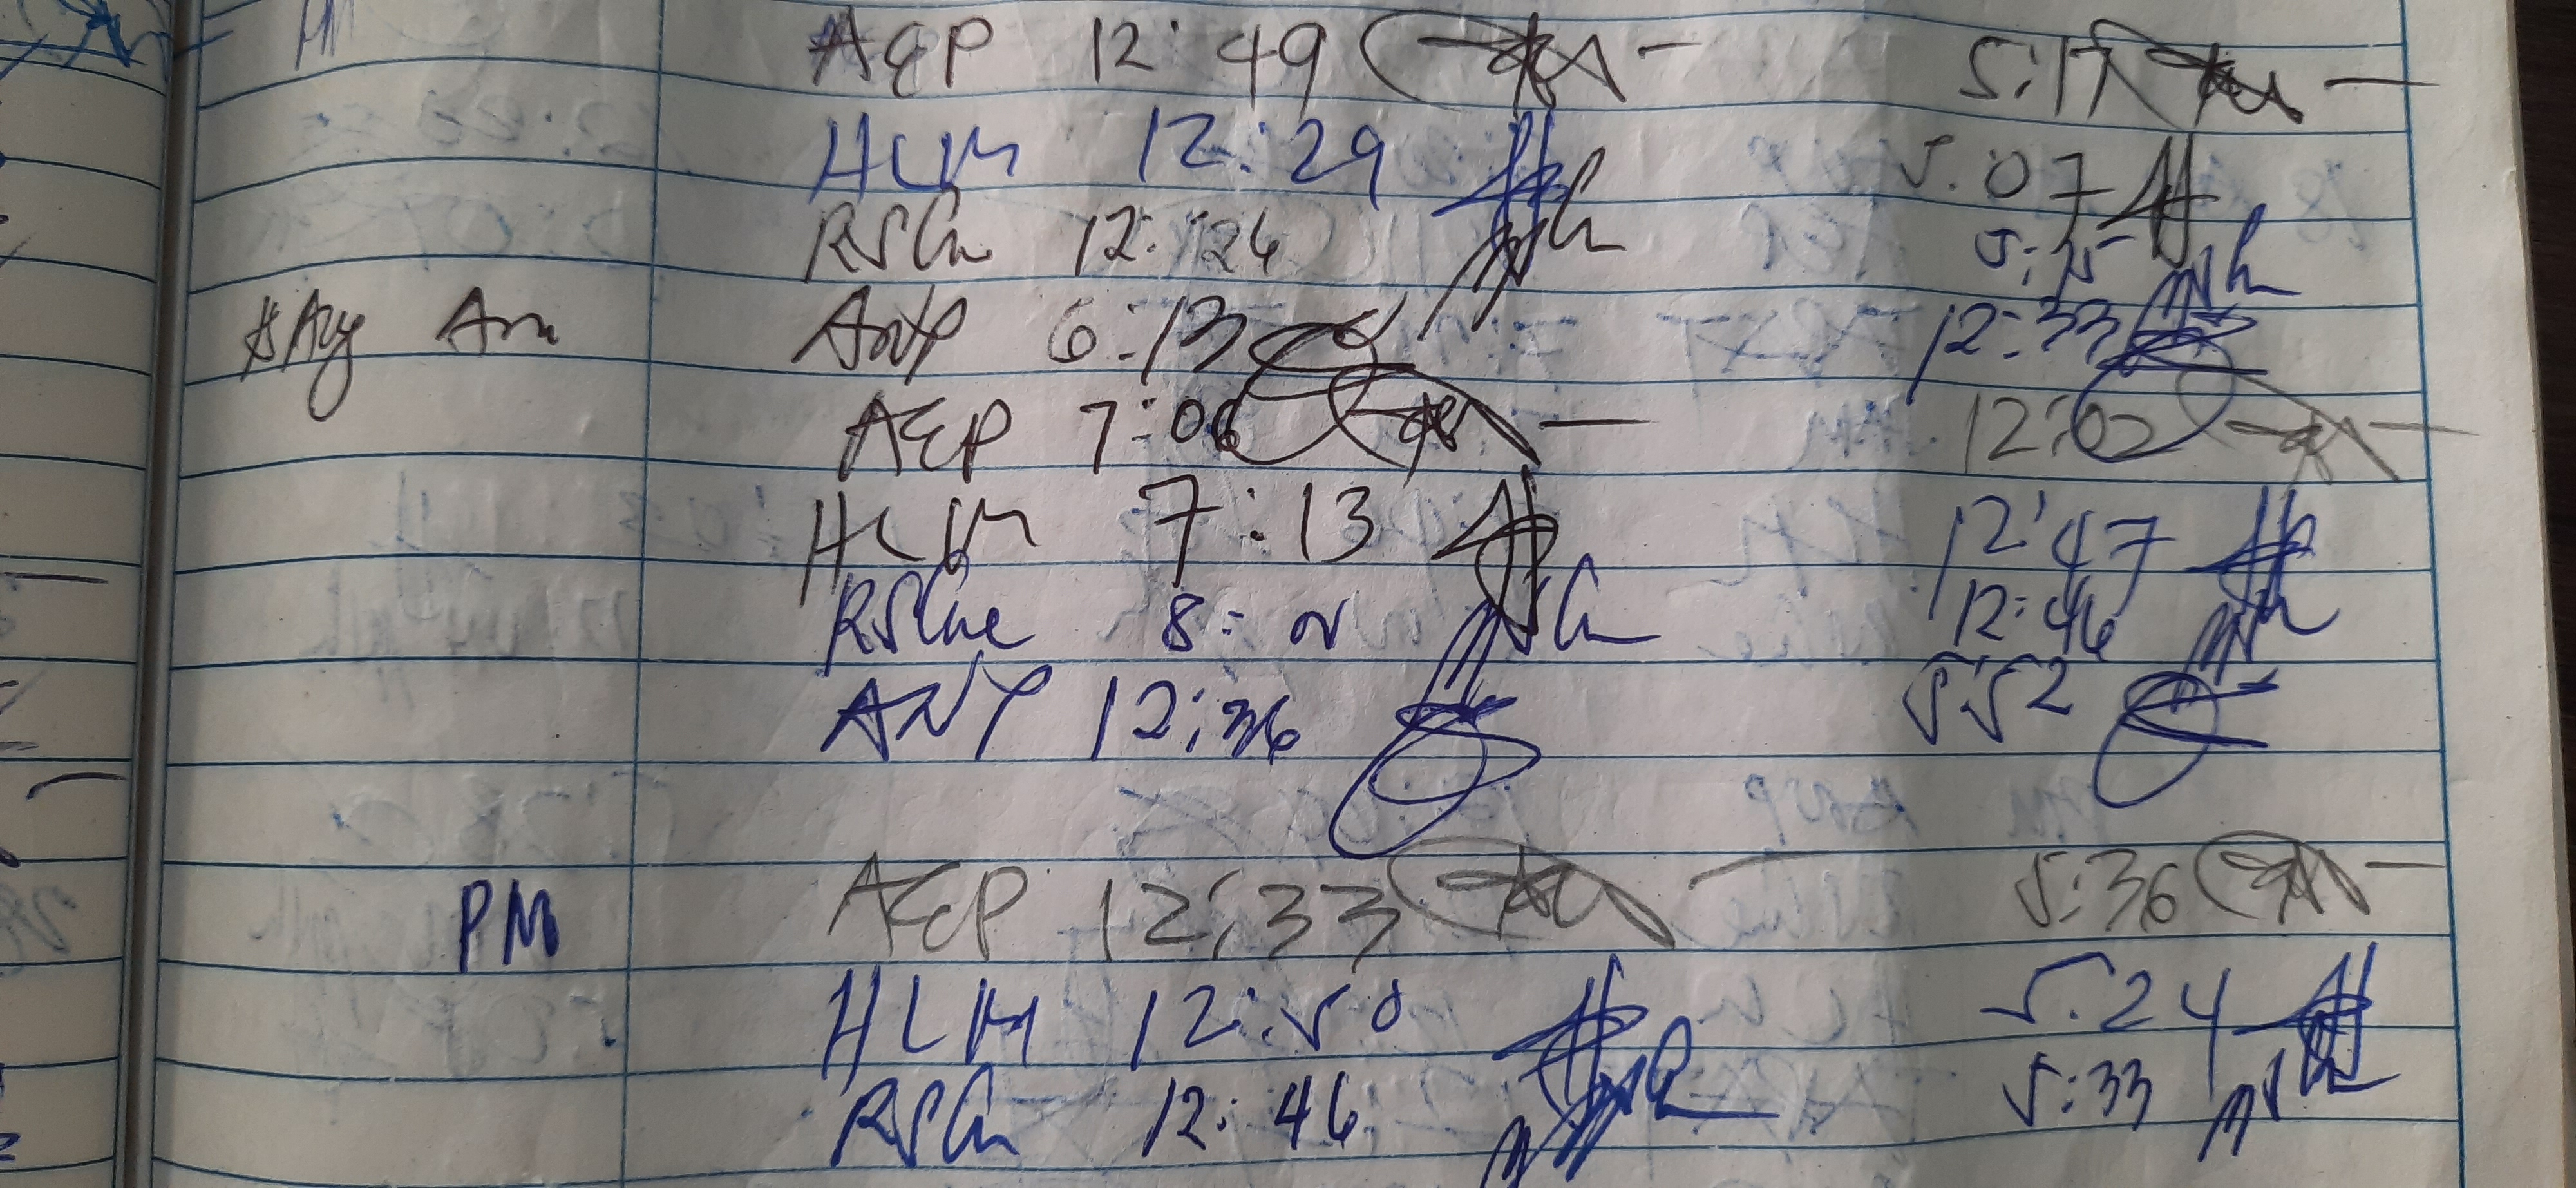 AEP 12:49 5:17
HLM 12:29 5.07
RSGu 12:24 5:15
Aug Am ANP 6:13 12:33
AEP 7:06 12:02
HLM 7:13 12:47
RSGue 8: 12:46
ANP 12:36 5:52
PM AEP 12:33 5:36
HLM 12:50 5.24
RSGu 12:46 5:33